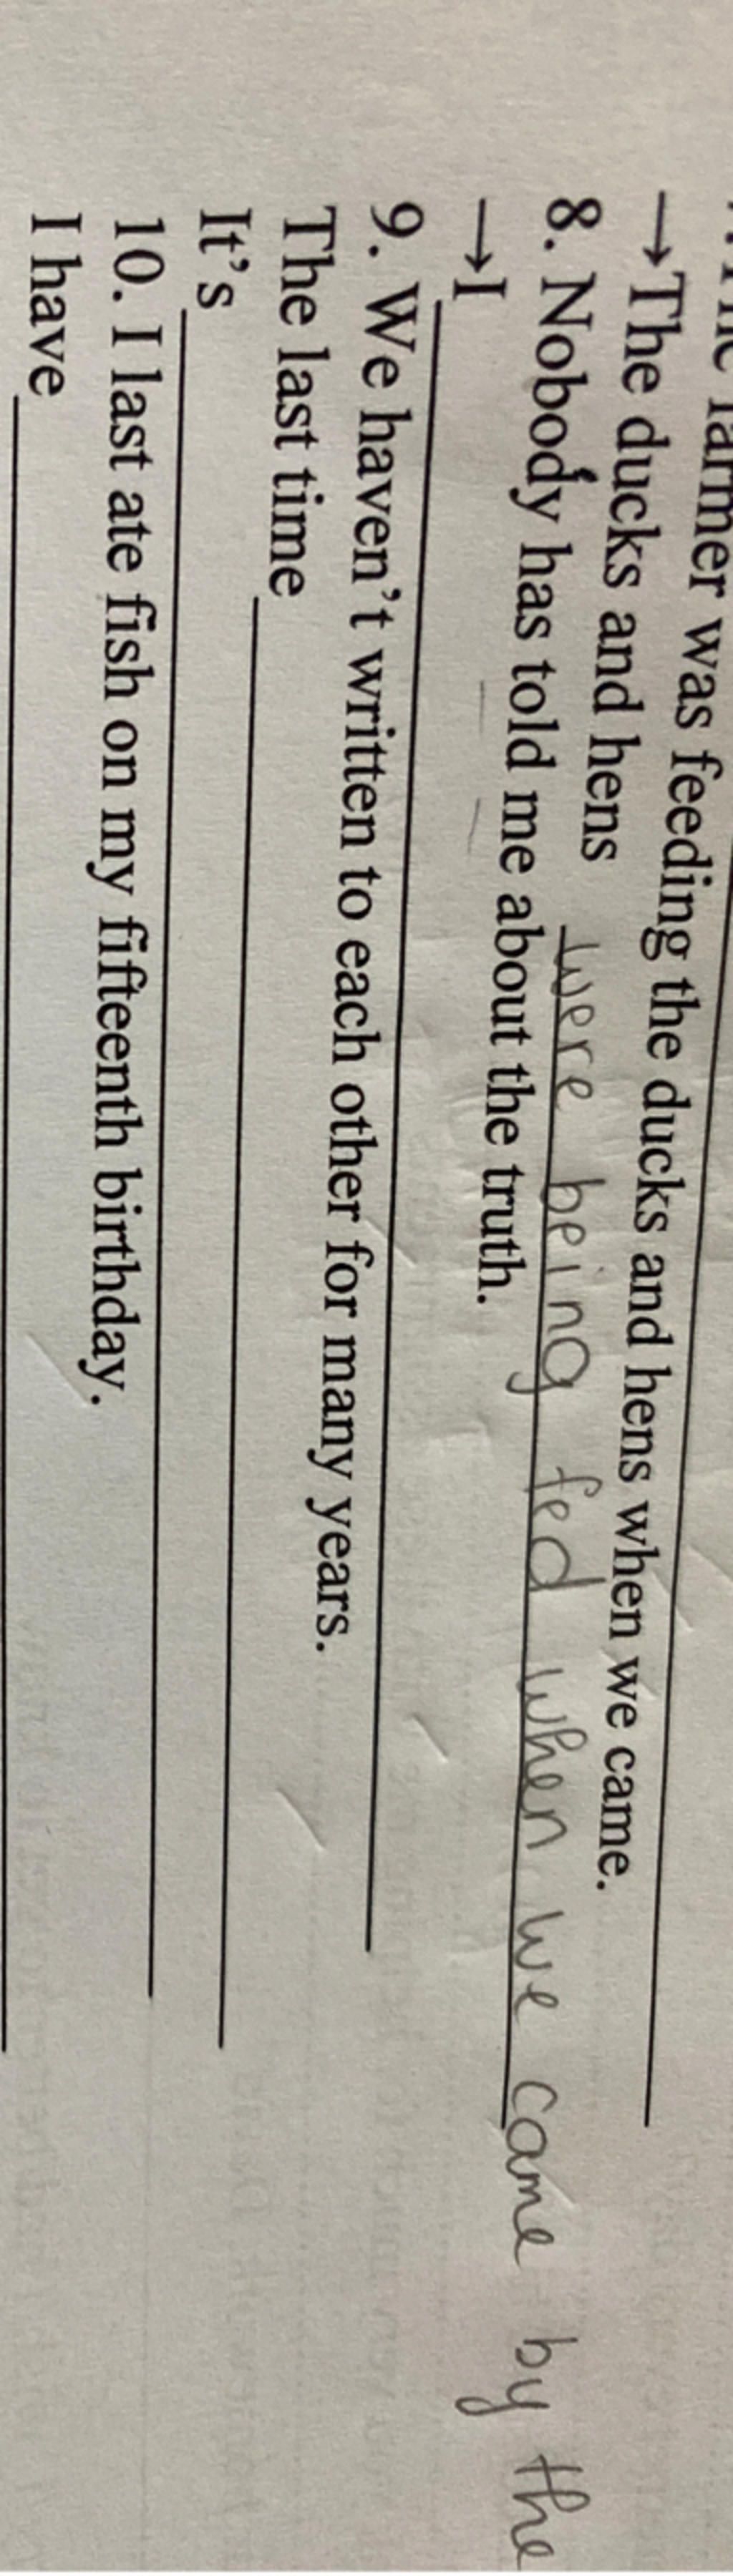 farmer was feeding the ducks and hens when we came.
→The ducks and hens were being fed when we came by the
8. Nobody has told me about the truth.
→I
9. We haven't written to each other for many years.
The last time
It's
10. I last ate fish on my fifteenth birthday.
I have